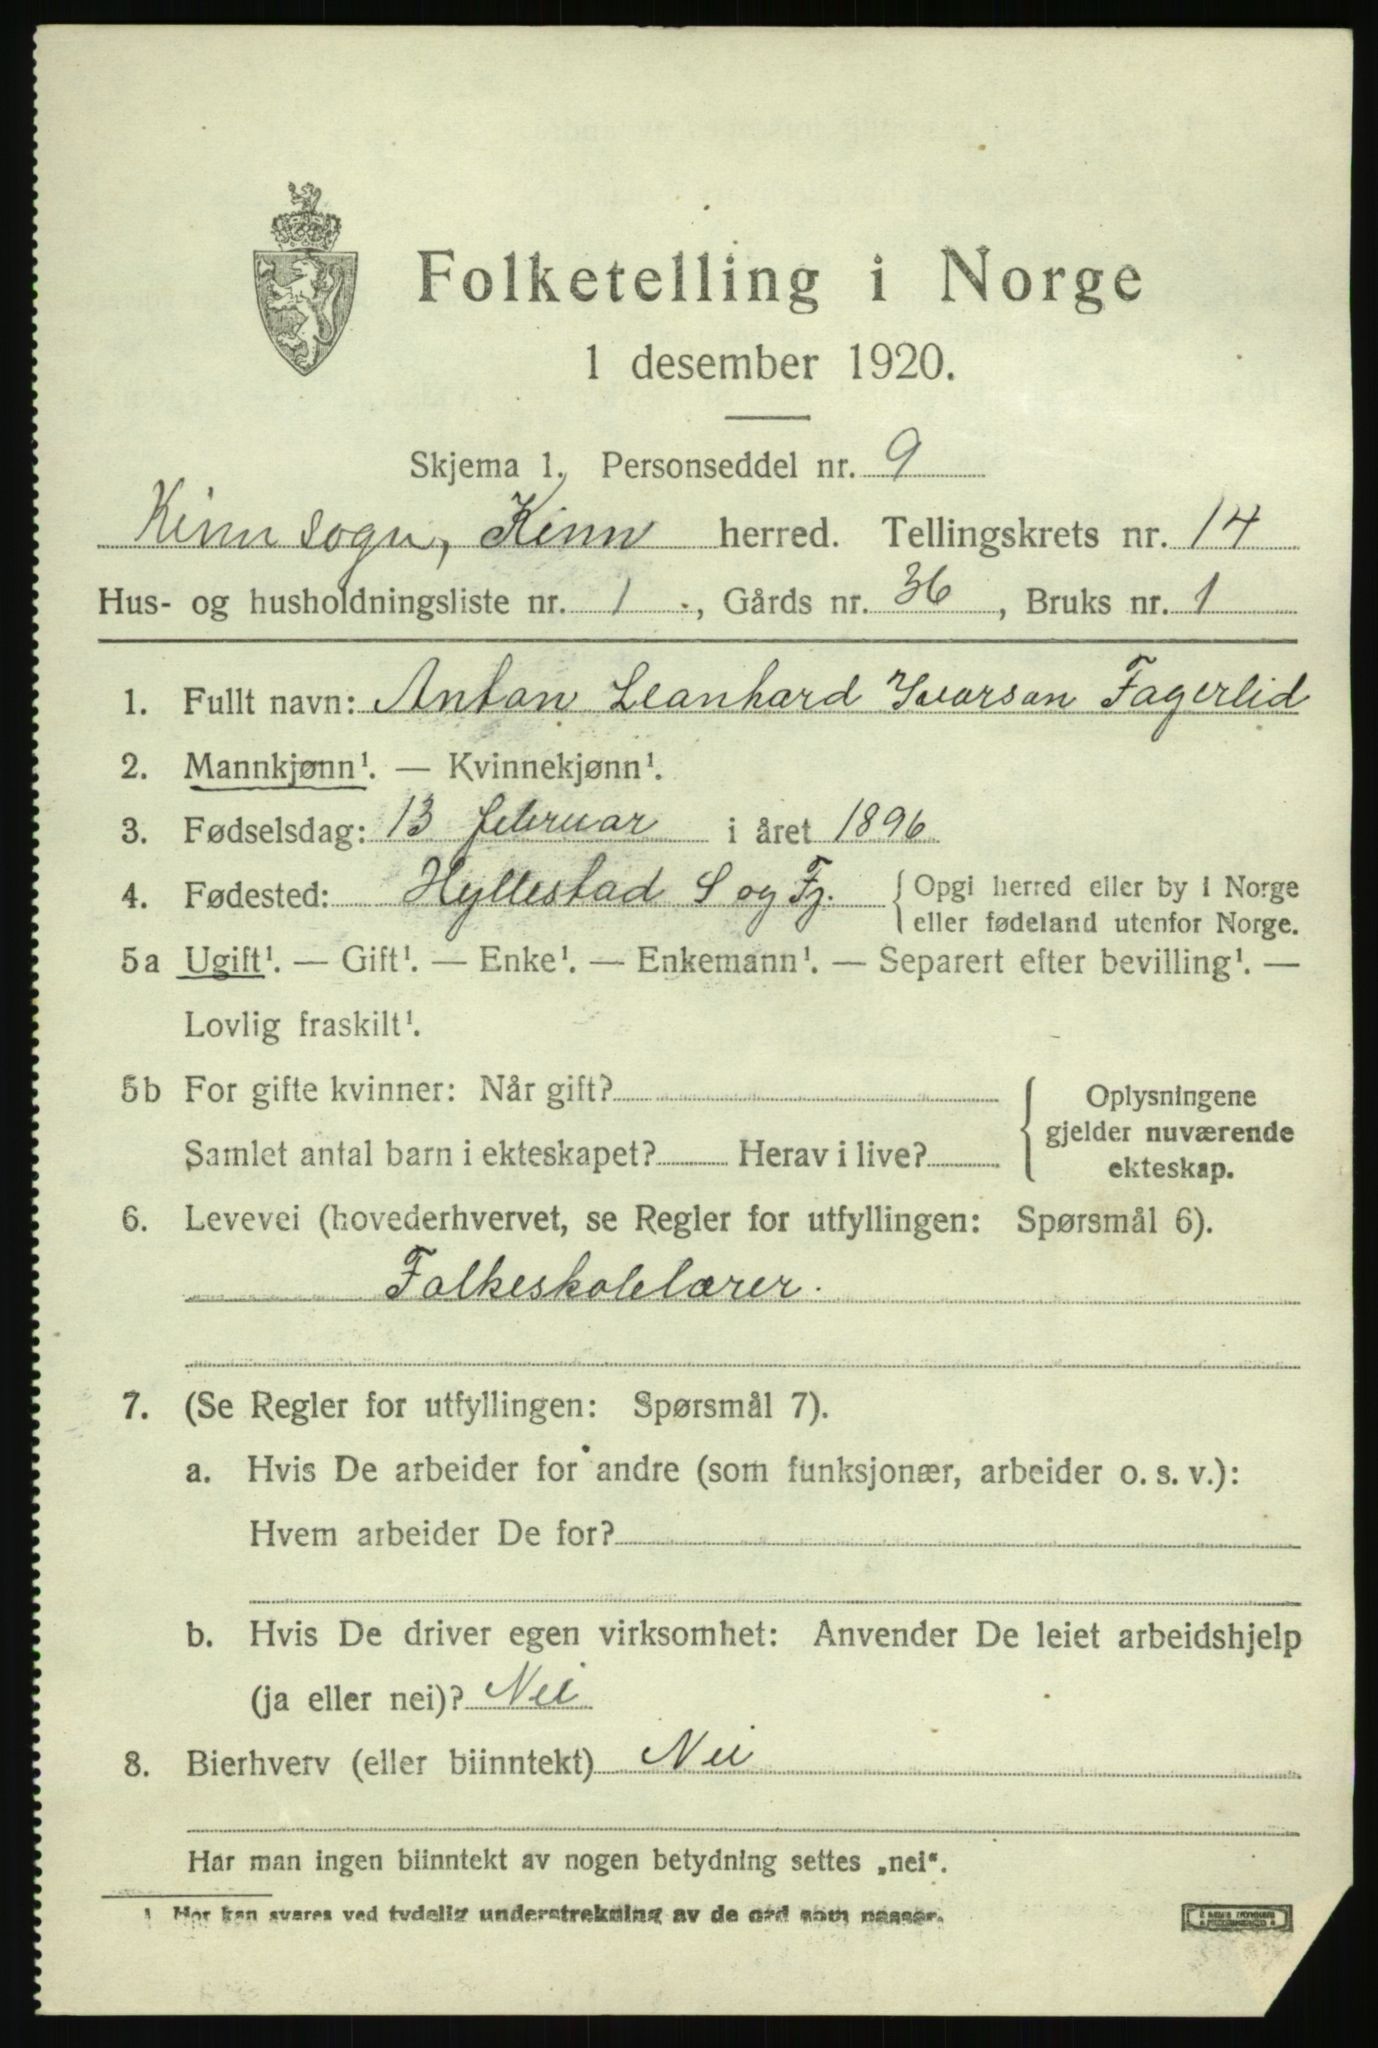 Folketelling i Norge
1 desember 1920.
Skjema 1. Personseddel nr. 9
Kinn sogn, Kinn herred. Tellingskrets nr. 14
Hus- og husholdningsliste nr. 1, Gårds nr. 36, Bruks nr. 1
1. Fullt navn: Anton Leonhard Ivarson Fagerlid
2. Mannkjønn¹. — Kvinnekjønn¹.
3. Fødselsdag: 13 februar i året 1896
4. Fødested: Hyllestad S og Fj. { Opgi herred eller by i Norge
eller fødeland utenfor Norge.
5a Ugift¹. — Gift¹. — Enke¹. — Enkemann¹. — Separert efter bevilling¹. —
Lovlig fraskilt¹.
5b For gifte kvinner: Når gift?
Samlet antal barn i ekteskapet? Herav i live?
Oplysningene
gjelder nuværende
ekteskap.
6. Levevei (hovederhvervet, se Regler for utfyllingen: Spørsmål 6).
Folkeskolelærer.
7. (Se Regler for utfyllingen: Spørsmål 7).
a. Hvis De arbeider for andre (som funksjonær, arbeider o. s. v.):
Hvem arbeider De for?
b. Hvis De driver egen virksomhet: Anvender De leiet arbeidshjelp
(ja eller nei)? Nei
8. Bierhverv (eller biinntekt) Nei
Har man ingen biinntekt av nogen betydning settes „nei“.
1 Her kan svares ved tydelig understrekning av de ord som passer.